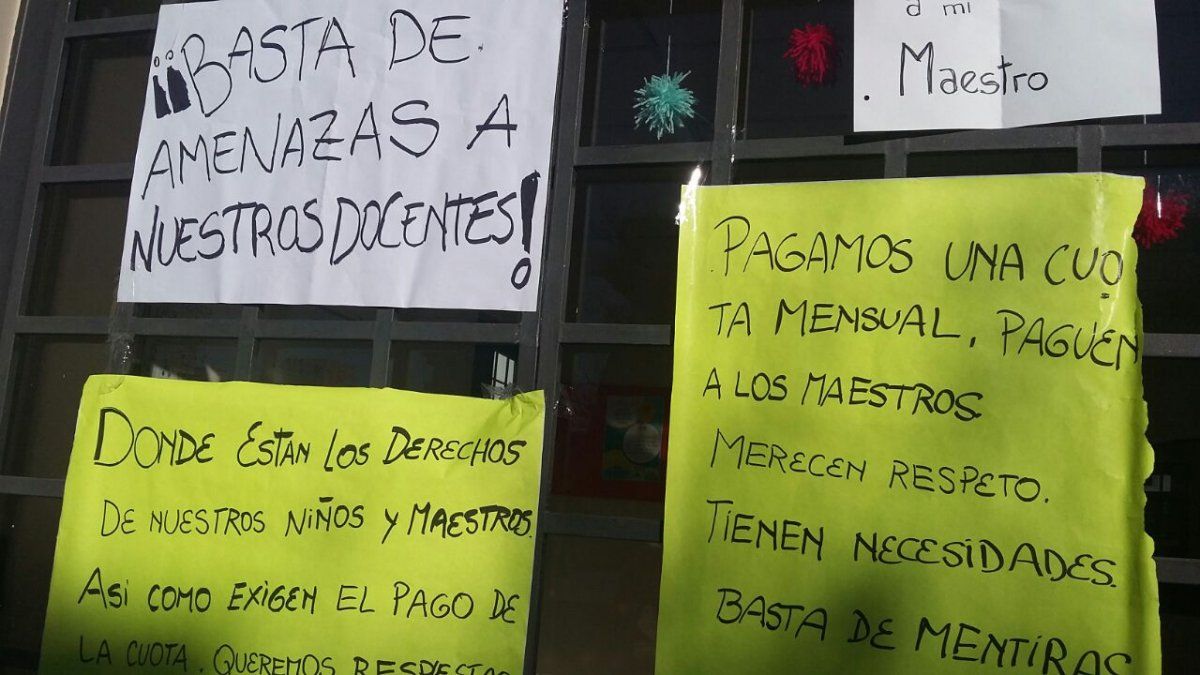 ¡¡BASTA DE
AMENAZAS A
NUESTROS DOCENTES!
a mi
. Maestro
DONDE ESTÁN LOS DERECHOS
DE NUESTROS NIÑOS Y MAESTROS.
ASI COMO EXIGEN EL PAGO DE
LA CUOTA. QUEREMOS
PAGAMOS UNA CUO
TA MENSUAL. PAGUEN
A LOS MAESTROS
MERECEN RESPETO.
TIENEN NECESIDADES.
BASTA DE MENTIRAS